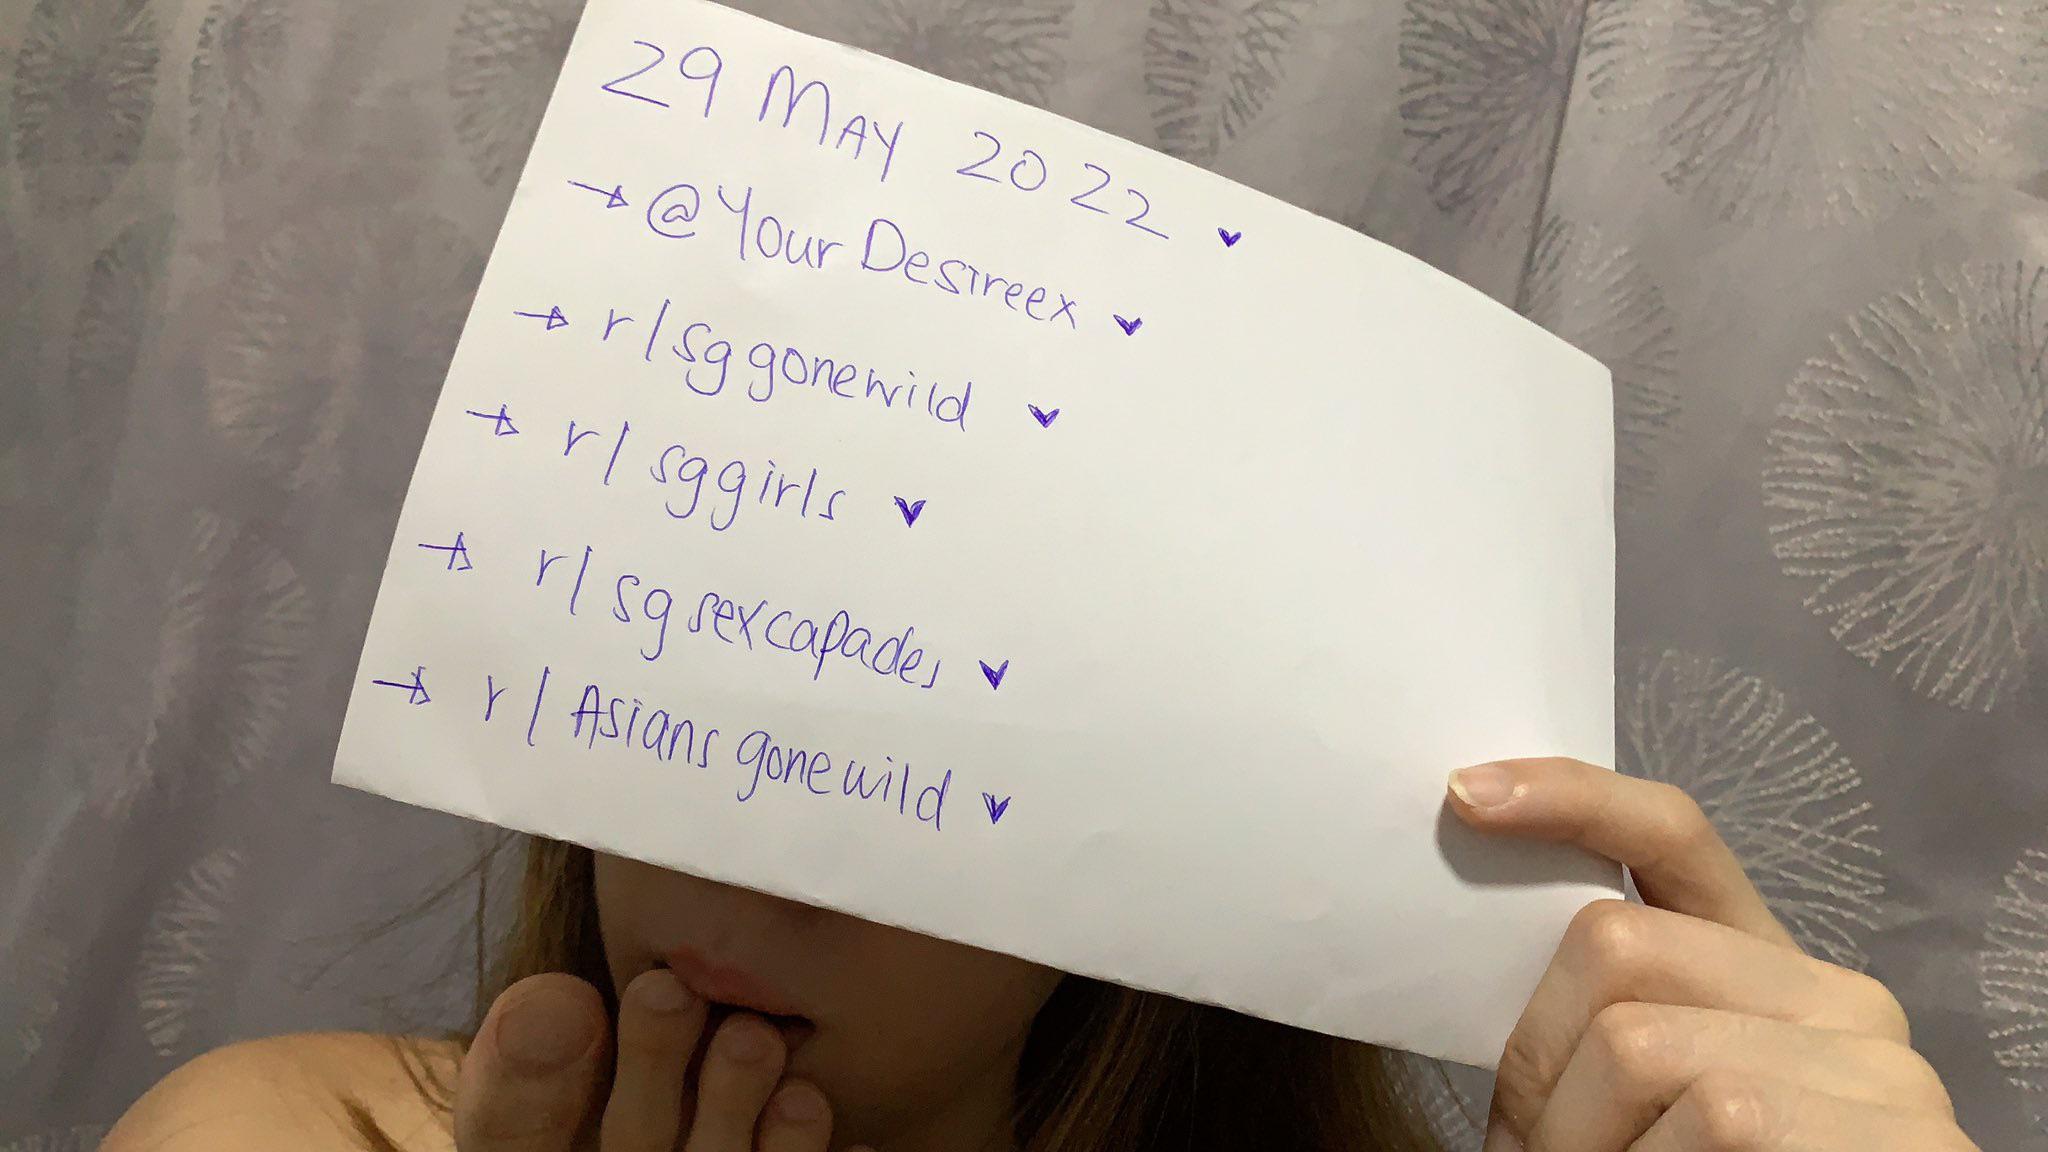 29 May 2022 ♥
→ @YourDesireex ♥
→ r/sggonewild ♥
→ r/sggirls ♥
→ r/sgsexcapades ♥
→ r/Asiansgonewild ♥